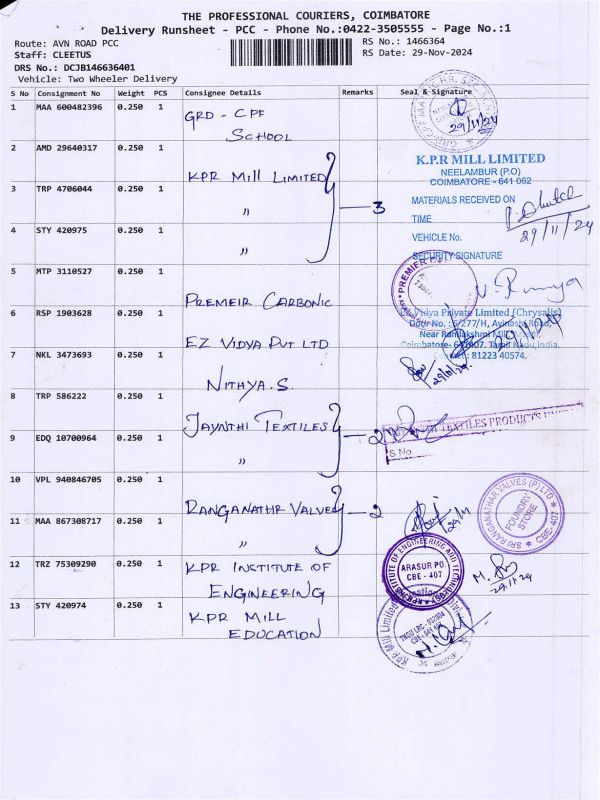 THE PROFESSIONAL COURIERS, COIMBATORE
Delivery Runsheet - PCC - Phone No.:0422-3505555 - Page No.:1
Route: AVN ROAD PCC
RS No.: 1466364
Staff: CLEETUS
RS Date: 29-Nov-2024
DRS No.: DCJB146636401
Vehicle: Two Wheeler Delivery
S No Consignment No Weight PCS Consignee Details Remarks Seal & Signature
1 MAA 600482396 0.250 1 GRD - CPF SCHOOL
29/11/24
2 AMD 29640317 0.250 1 KPR Mill LIMITED
3 TRP 4706044 0.250 1 "
3
4 STY 420975 0.250 1 "
K.P.R MILL LIMITED
NEELAMBUR (P.O)
COIMBATORE - 641 062
MATERIALS RECEIVED ON
TIME
29/11/24
VEHICLE No.
SECURITY SIGNATURE
5 MTP 3110527 0.250 1 PREMEIR CARBONIC
PREMIER
6 RSP 1903628 0.250 1 EZ VIDYA PVT LTD
Vidya Private Limited (Chrysalis)
Door No. : 6/277/H, Avinashi Road,
Near Ramlakshmi Mill
Coimbatore- 641407. Tamil Nadu, India.
81223 40574.
7 NKL 3473693 0.250 1 NITHYA. S.
8 TRP 586222 0.250 1 JAYNTHI TEXTILES
9 EDQ 10700964 0.250 1 "
2
TEXTILES PRODUCTS
S No
10 VPL 940846705 0.250 1 RANGANATHR VALVE
11 MAA 867308717 0.250 1 "
2
29/11
SRI RANGANATHAR VALVES (P) LTD
FOUNDRY STORE
CBE-407
12 TRZ 75309290 0.250 1 KPR INSTITUTE OF ENGINEERING
KPR INSTITUTE OF ENGINEERING AND TECHNOLOGY
ARASUR PO.
CBE - 407
29.11.24
13 STY 420974 0.250 1 KPR MILL EDUCATION
KPR Mill Limited